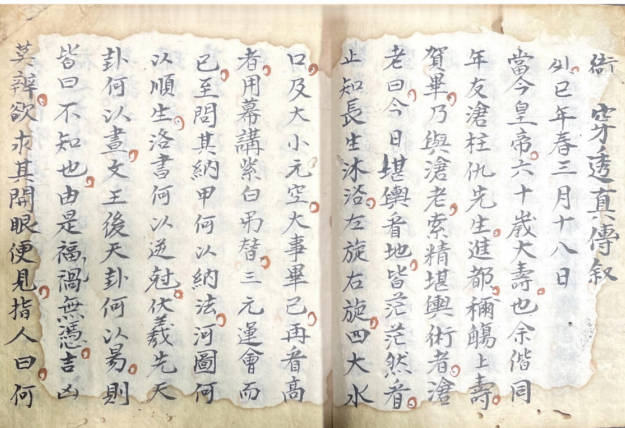 穿透真傳叙
巳年春三月十八日
當今皇帝六十歲大壽也余偕同
年友滄柱仇先生進都稱觴上壽
賀畢乃與滄老索精堪輿術者滄
老曰今日堪輿音地皆茫茫然音
止知長生沐浴左旋右旋四大水
口及大小元空大事畢已再音高
者用幕講紫白弔替三元運會而
已至問其納甲何以納法河圖何
以順生洛書何以逆尅伏羲先天
卦何以畫文王後天卦何以易則
皆曰不知也由是福禍無憑吉凶
莫辨欲求其開眼便見指人曰何